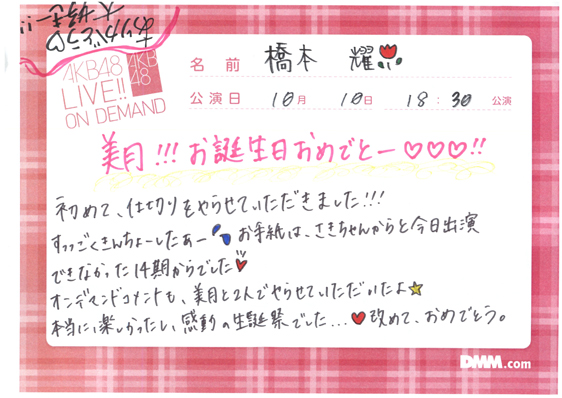 ありがとう♡
大好きー!!
AKB48
LIVE!!
ON DEMAND
AKB
48
名前 橋本 耀
公演日 10月 10日 18:30 公演
美月!!!お誕生日おめでとー♡♡♡!!
初めて、仕切りをやらせていただきました!!!
すっっごくきんちょーしたあー お手紙は、さきちゃんからと今日出演
できなかった14期からでした♥
オンデマンドコメントも、美月と2人でやらせていただいたよ☆
本当に楽しかったし、感動の生誕祭でした...♥改めて、おめでとう。
DMM.com